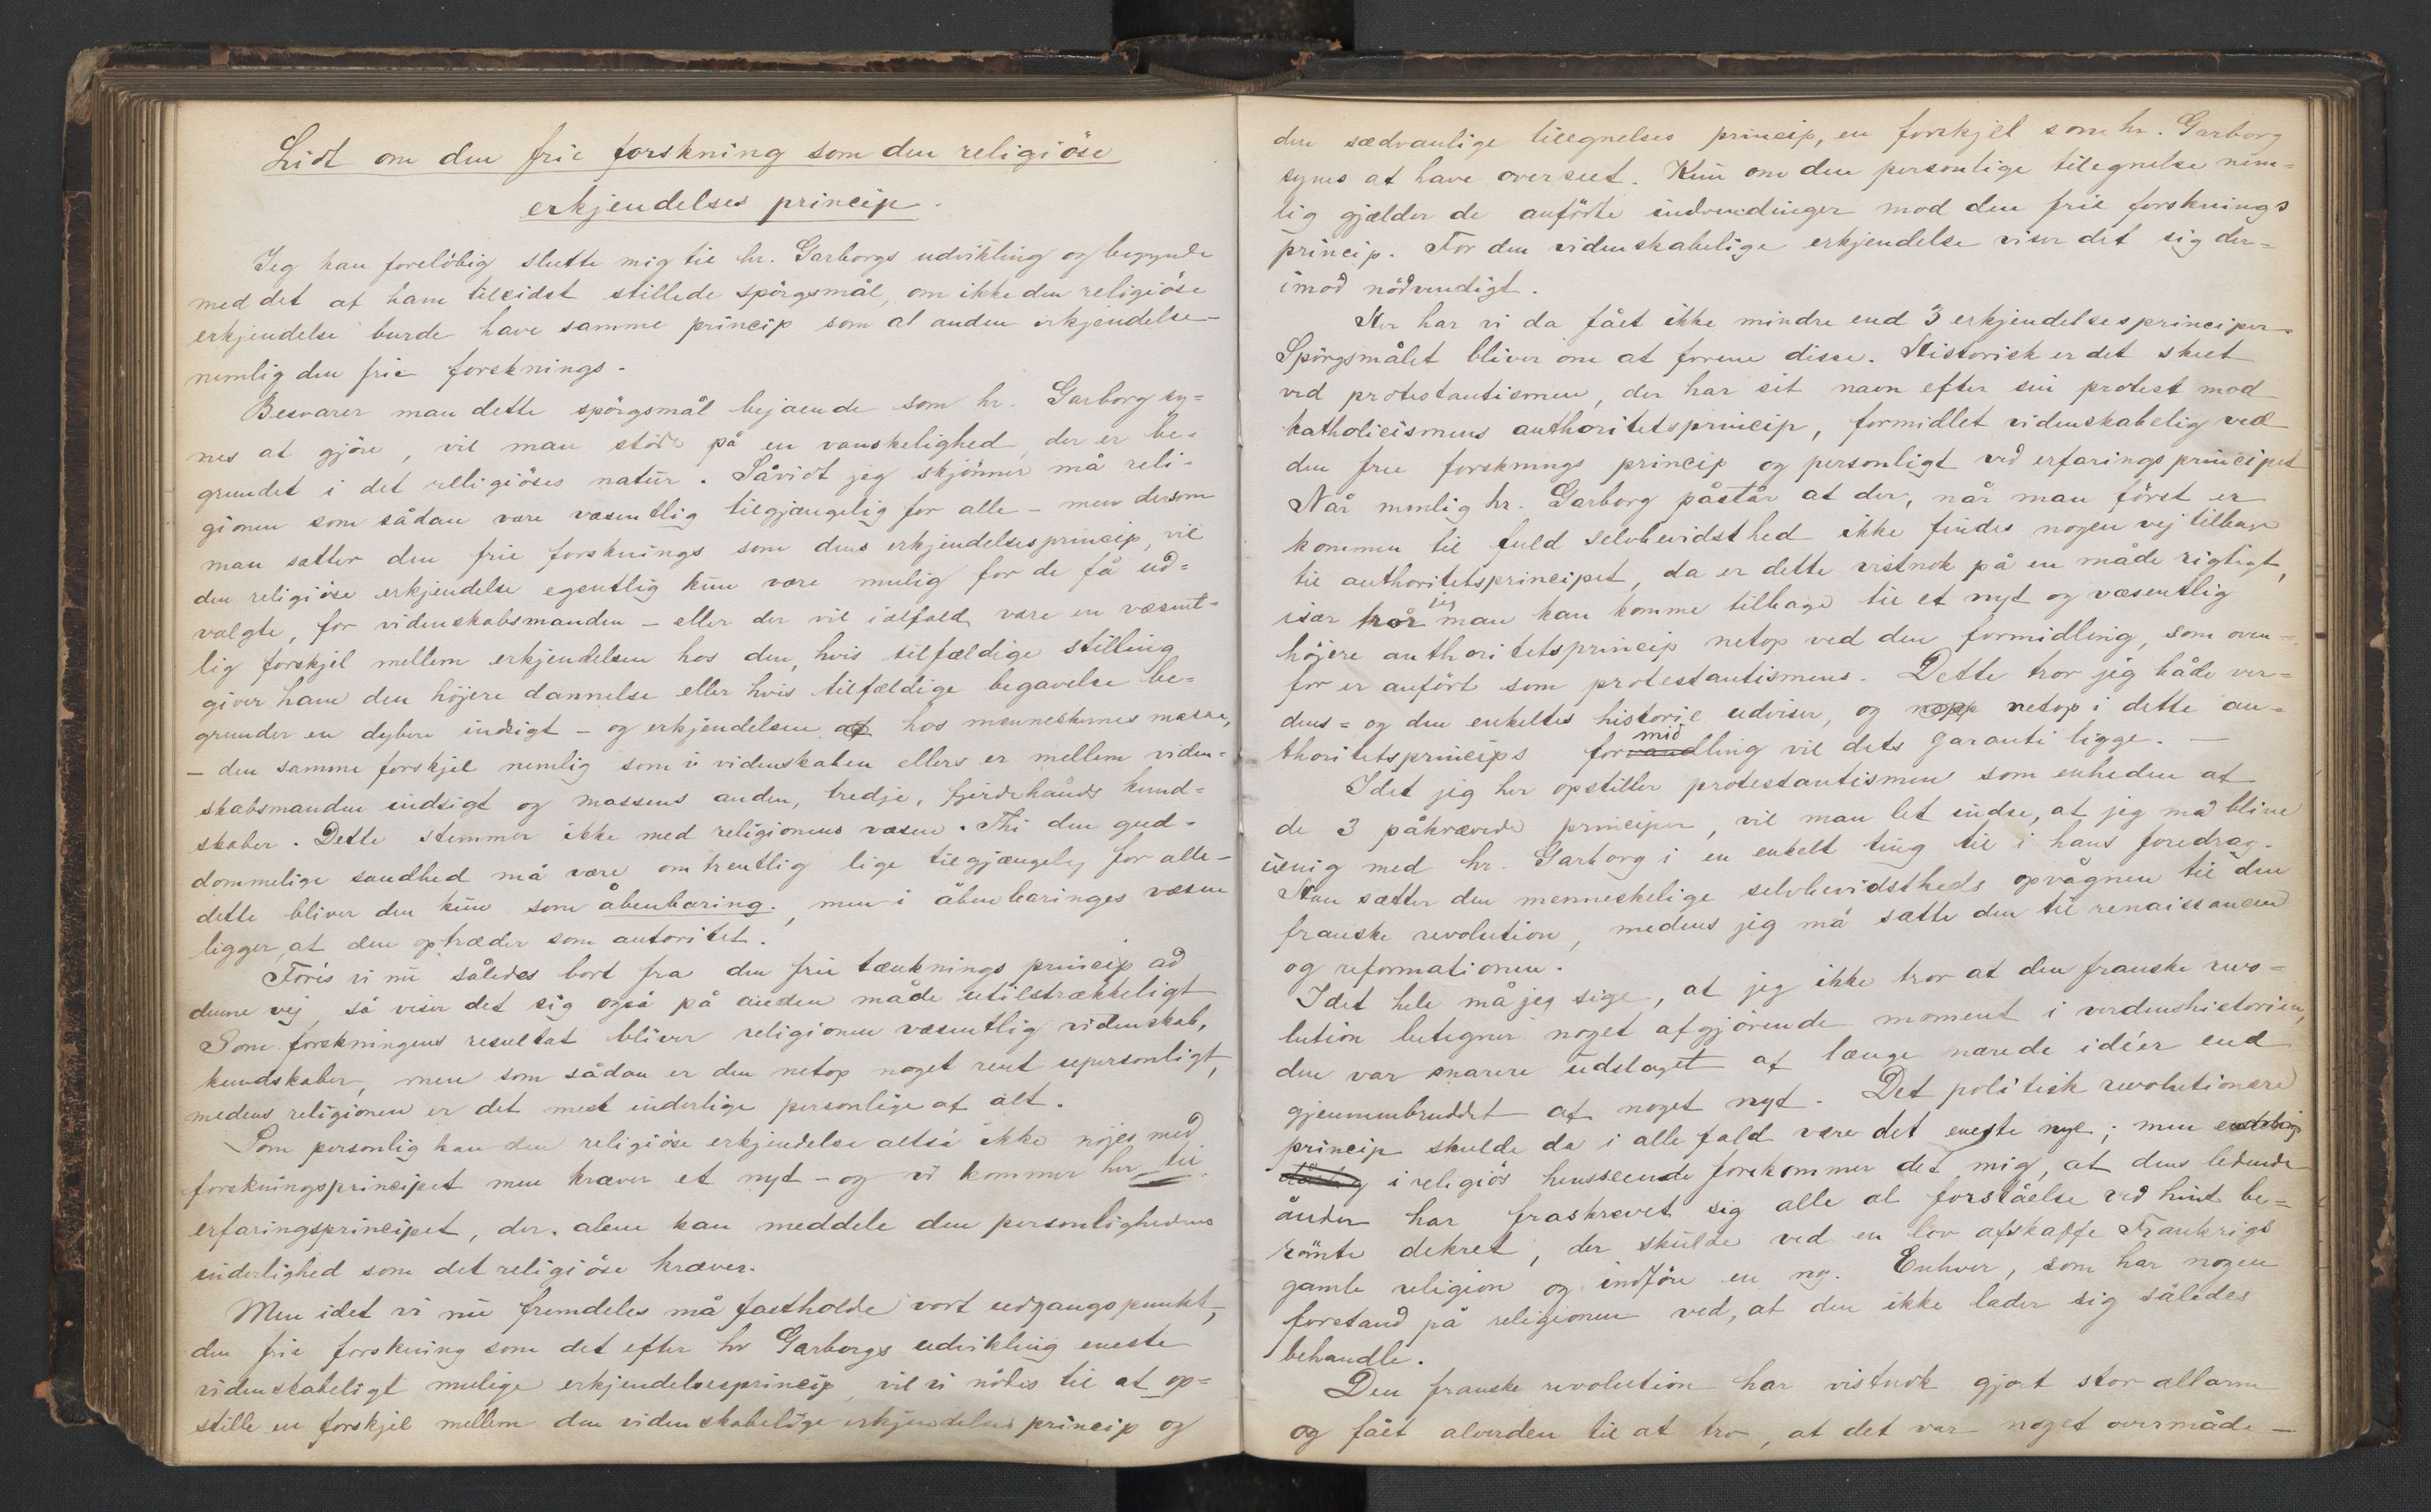 Lidt om den frie forskning som den religiöse
erkjendelses princip.
Jeg kan forelöbig slutte mig til hr. Garborgs udvikling og begynde
med det af ham tilsidst stillede spörgsmål, om ikke den religiöse
erkjendelse burde have samme princip som al anden erkjendelse -
nemlig den frie forsknings.
Besvarer man dette spörgsmål bejaende som hr. Garborg sy=
nes at gjöre, vil man stöde på en vanskelighed, der er be=
grundet i det religiöses natur. Såvidt jeg skjönner må reli-
gionen som sådan være væsentlig tilgjængelig for alle - men dersom
man sætter den frie forsknings som dens erkjendelsesprincip, vil
den religiöse erkjendelse egentlig kun være mulig for de få ud=
valgte, for videnskabsmanden - eller der vil ialfald være en væsent-
lig forskjel mellem erkjendelsen hos den, hvis tilfældige stilling
giver ham den höjere dannelse eller hvis tilfældige begavelse be=
grunder en dybere indsigt - og erkjendelsen af hos menneskenes masse,
- den samme forskjel nemlig som i videnskaben ellers er mellem viden-
skabsmanden indsigt og massens anden, tredje, fjerdehånds kund=
skaber. Dette stemmer ikke med religionens væsen. Thi den gud-
dommelige sandhed må være omtrentlig lige tilgjængelig for alle -
dette bliver den kun som åbenbaring., men i åbenbaringes væsen
ligger, at den optræder som autoritet.
Föres vi nu således bort fra den frie tænknings princip ad
denne vej, så viser det sig også på anden måde utilstrækkeligt
Som forskningens resultat bliver religionen væsentlig videnskab,
kundskaber, men som sådan er den netop noget rent upersonligt,
medens religionen er det mest inderlige personlige af alt.
Som personlig kan den religiöse erkjendelse altså ikke nöjes med
forskningsprincipet men kræver et nyt - og vi kommer her til
erfaringsprincipet, der alene kan meddele den personlighedens
inderlighed som det religiöse kræver.
Men idet vi nu fremdeles må fastholde vort udgangspunkt,
den frie forskning som det efter hr Garborgs udvikling eneste
videnskabeligt mulige erkjendelsesprincip, vil vi nödes til at op=
stille en forskjel mellem den videnskabelige erkjendelses princip og
den sædvanlige tilegnelses princip, en forskjel som hr. Garborg
synes at have overseet. Kun om den personlige tilegnelse nem=
lig gjælder de anförte indvendinger mod den frie forsknings
princip. For den videnskabelige erkjendelse viser det sig der=
imod nödvendigt.
Her har vi da fået ikke mindre end 3 erkjendelsesprinciper.
Spörgsmålet bliver om at forene disse. Historisk er det skeet
ved protestantismen, der har sit navn efter sin protest mod
katholicismens authoritetsprincip, formidlet videnskabelig ved
den frie forsknings princip og personligt ved erfaringsprincipet
Når nemlig hr. Garborg påstår at der, når man först er
kommen til fuld selvbevidsthed ikke findes nogen vej tilbage
til authoritetsprincipet, da er dette vistnok på en måde rigtigt,
især tror jeg man kan komme tilbage til et nyt og væsentlig
höjere authoritetsprincip netop ved den formidling, som oven=
for er anfört som protestantismens. Dette tror jeg både ver=
dens= og den enkeltes historie udviser, og nopp netop i dette au=
mid
thoritetsprincips forvandling vil dets garanti ligge. -
Idet jeg her opstiller protestantismen som enheden af
de 3 påkrævede principer, vil man let indse, at jeg må blive
uenig med hr. Garborg i en enkelt ting til i hans foredrag.
Han sætter den menneskelige selvbevidstheds opvågnen til den
franske revolution, medens jeg må sætte den til renaissancen
og reformationen.
I det hele må jeg sige, at jeg ikke tror at den franske revo=
lution betegner noget afgjörende moment i verdenshistorien,
den var snarere udslaget af længe nærede idéer end
gjennembruddet af noget nyt. Det politisk revolutionære
princip skulde da i alle fald være det eneste nye; men
i religiös henseende forekommer det mig, at dens ledende
ånder har fraskrevet sig alle al forståelse ved hint be=
römte dekret, der skulde ved en lov afskaffe Frankrigs
gamle religion og indföre en ny. Enhver, som har nogen
forstand på religionen ved, at den ikke lader sig således
behandle.
Den franske revolution har vistnok gjort stor allarm
og fået alverden til at tro, at det var noget overmåde -